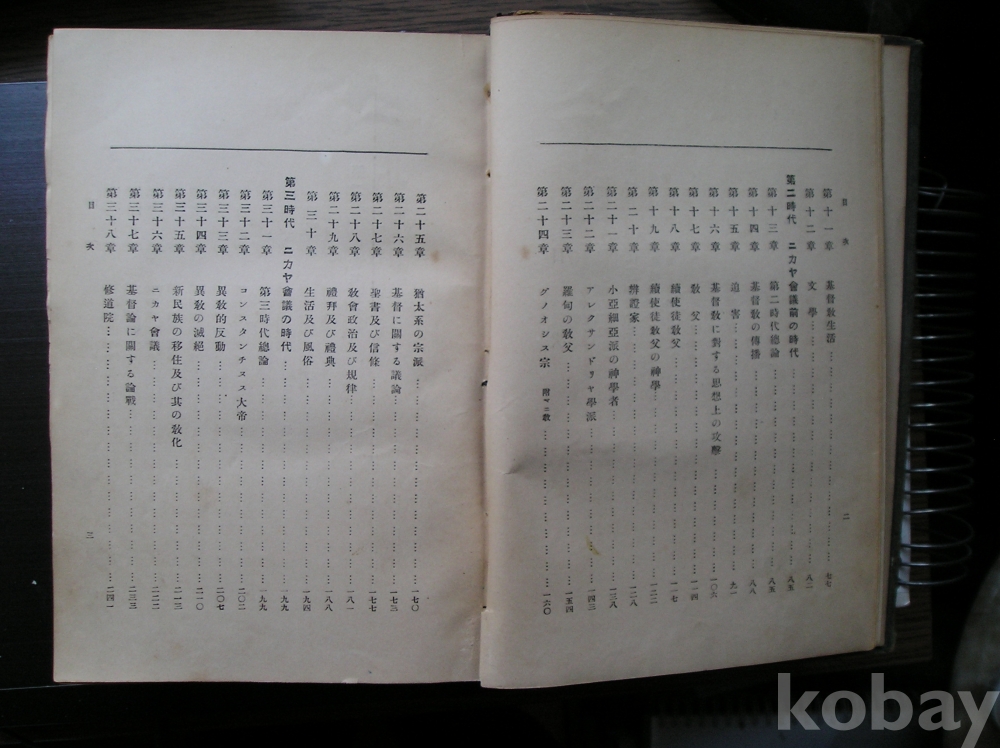 目次
二
第十一章 基督教生活 七七
第十二章 文學 八二
第二時代 ニカヤ會議前の時代 八五
第十三章 第二時代總論 八五
第十四章 基督教の傳播 八八
第十五章 迫害 九一
第十六章 基督教に對する思想上の攻擊 一〇六
第十七章 敎父 一一四
第十八章 續使徒敎父 一一七
第十九章 續使徒敎父の神學 一二二
第二十章 辨證家 一二八
第二十一章 小亞細亞派の神學者 一三八
第二十二章 アレクサンドリヤ學派 一四三
第二十三章 羅甸の敎父 一五四
第二十四章 グノオシス宗 附マニ敎 一六〇
第二十五章 猶太系の宗派 一七〇
第二十六章 基督に關する議論 一七三
第二十七章 聖書及び信條 一七七
第二十八章 敎會政治及び規律 一八一
第二十九章 禮拜及び禮典 一八八
第三十章 生活及び風俗 一九四
第三時代 ニカヤ會議の時代 一九九
第三十一章 第三時代總論 一九九
第三十二章 コンスタンチヌス大帝 二〇二
第三十三章 異敎的反動 二〇七
第三十四章 異敎の滅絕 二一〇
第三十五章 新民族の移住及び其の敎化 二一三
第三十六章 ニカヤ會議 二二二
第三十七章 基督論に關する論戰 二三三
第三十八章 修道院 二四一
目次
三
kobay